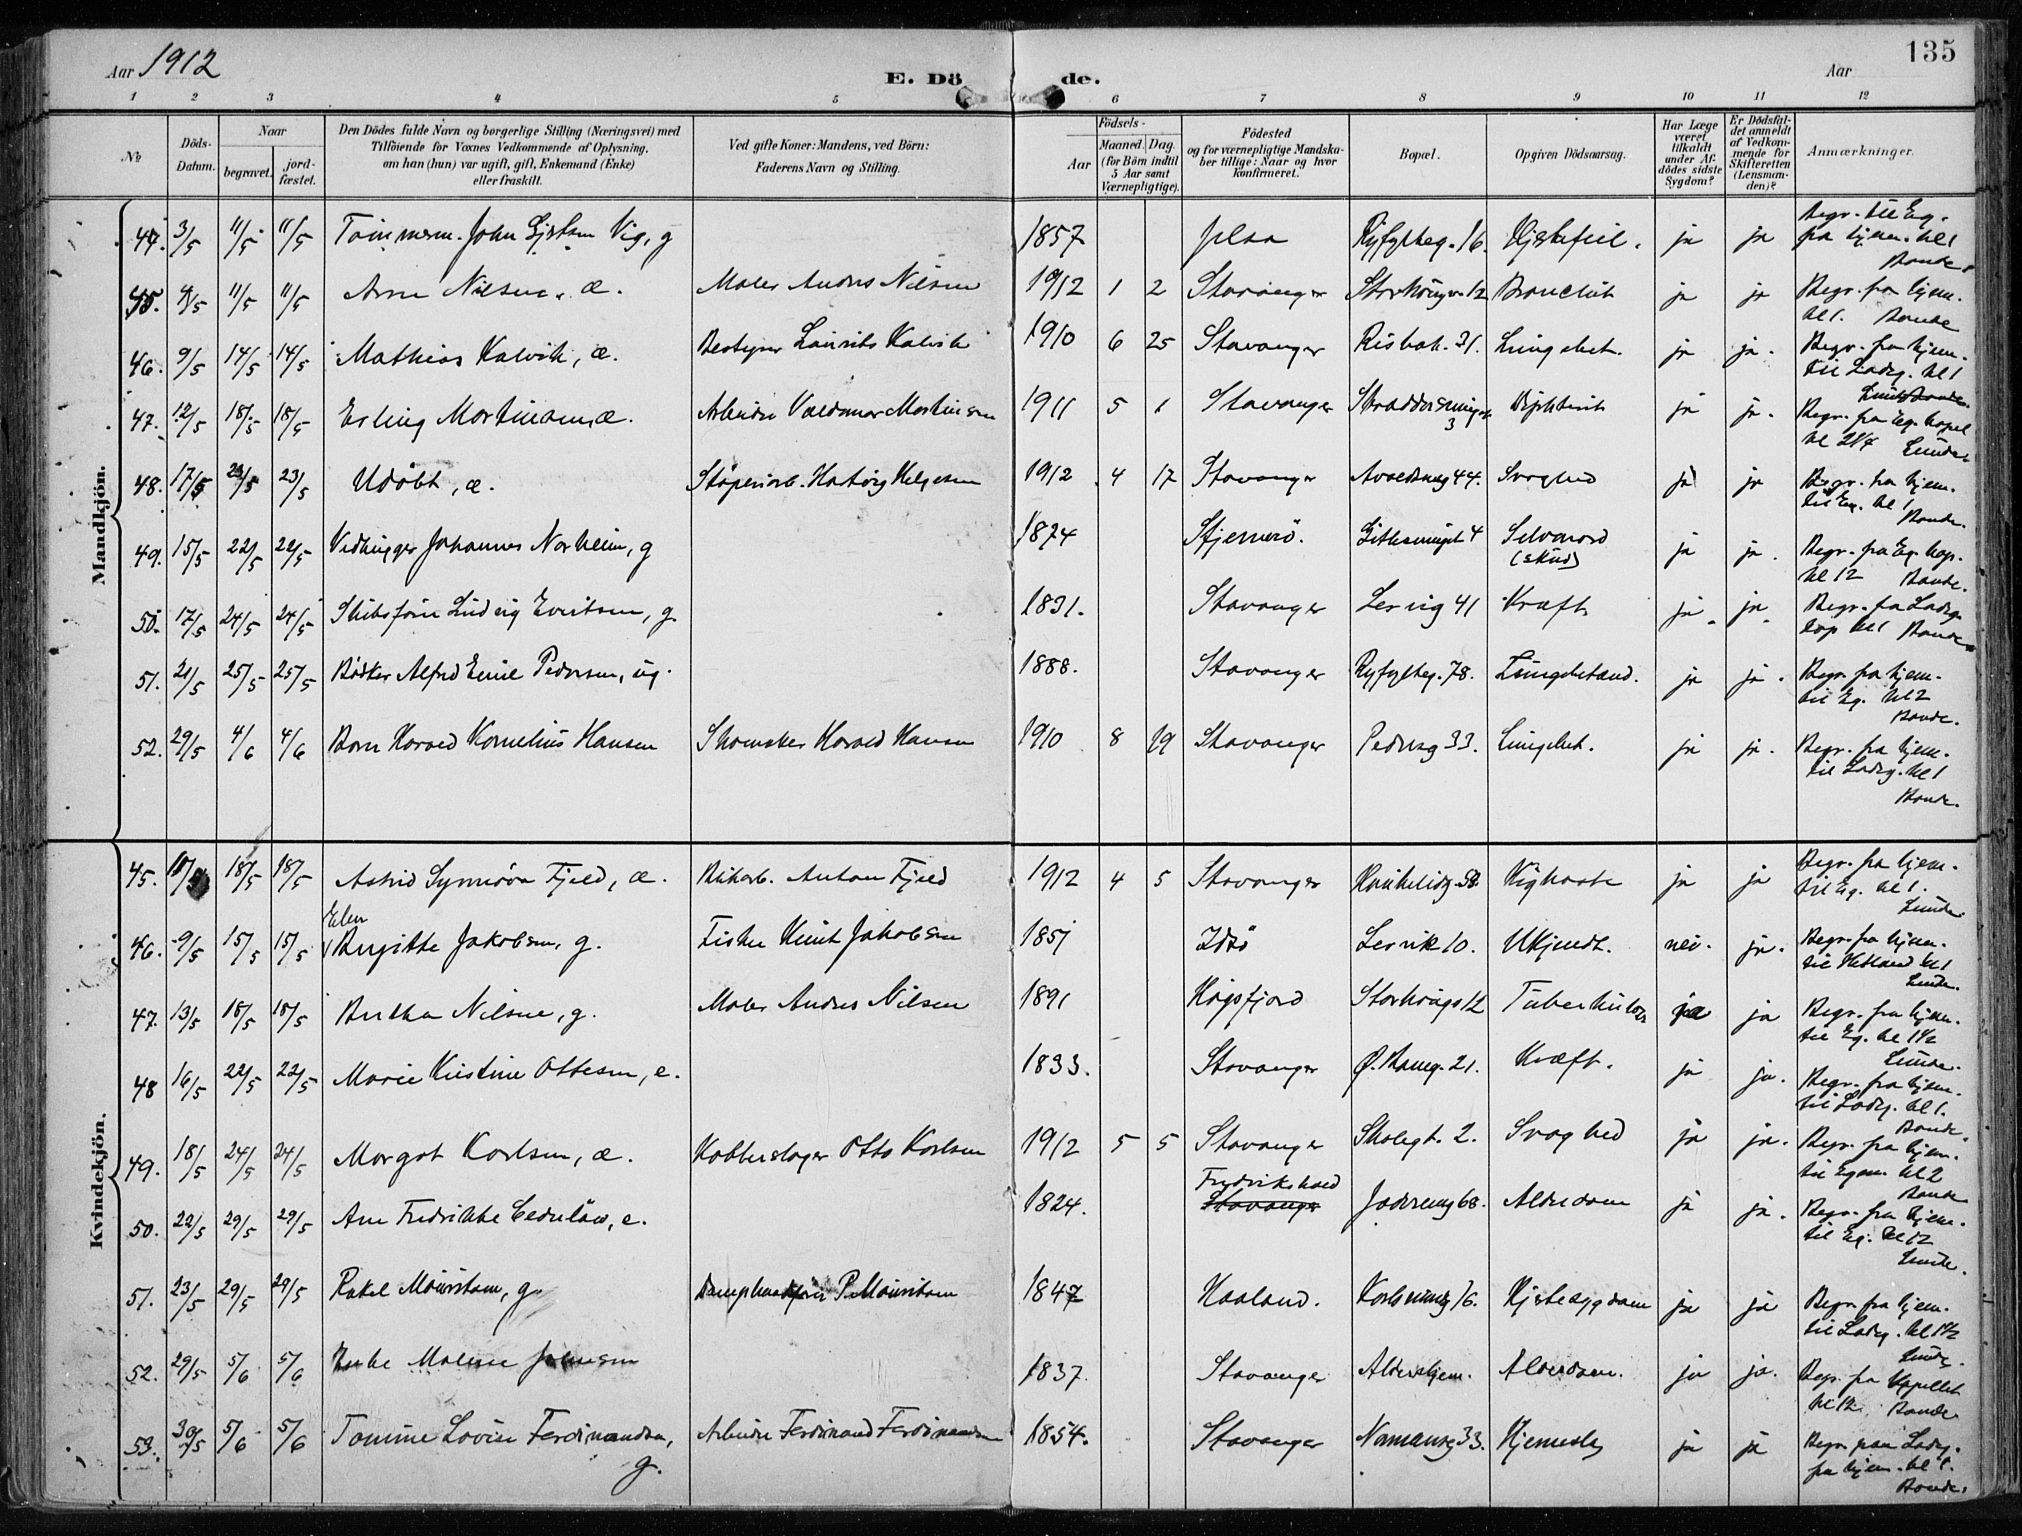 Aar 1912
E. Dö de.
Aar
135
1 2 3 4 5 6 7 8 9 10 11 12
No
Döds-Datum.
Naar
begravet.
jord-fæstet.
Den Dödes fulde Navn og borgerlige Stilling (Næringsvei) med
Tilföiende for Voxnes Vedkommende af Oplysning,
om han (hun) var ugift, gift, Enkemand (Enke)
eller fraskilt.
Ved gifte Koner: Mandens, ved Börn:
Faderens Navn og Stilling.
Födsels-
Aar
Maaned. Dag.
(for Börn indtil
5 Aar samt
Værnepligtige).
Födested
og for værnepligtige Mandska-
ber tillige: Naar og hvor
Konfirmeret.
Bopæl.
Opgiven Dödsaarsag.
Har Læge
været
tilkaldt
under Af-
dödes sidste
Sygdom?
Er Dödsfal-
det anmeldt
af Vedkom-
mende for
Skifteretten
(Lensman-
den)?
Anmærkninger.
Mandkjön.
44. 3/5 11/5 11/5 Tømmerm. John Vig, g 1857 Jelsa Ryfylkeg. 16. Hjertefeil. ja ja Begr. til Eg. fra hjem. kl 1 Bonde.
45. 4/5 11/5 11/5 Arne Nilsen, æ. Maler Andrus Nilsen 1912 1 2 Stavanger 12 Bronchit ja ja Begr. fra hjem. kl 1. Bonde
46. 9/5 14/5 14/5 Mathias Kalvik, æ. Bestyrer Laurits Kalvik 1910 6 25 Stavanger Risbak. 31. Lungebet. ja ja. Begr. fra hjem. til Ladeg. kl 1
47. 12/5 18/5 18/5 Erling Martinsen, æ. Arbeider Valdemar Martinsen 1911 5 1 Stavanger 3 Diphterit ja ja. Begr. fra Eg. kapel kl 2 1/4 Lunde.
48. 17/5 23/5 23/5 Udöbt, æ. Støperiarb. Hartvig Helgesen 1912 4 17 Stavanger 44. Svaghed ja ja Begr. fra hjem. til Eg. kl 1 Bonde.
49. 15/5 22/5 22/5 Vedhugger Johannes Norheim, g 1874 Stjernerö. 4 Selvmord (skud) ja ja. Begr. fra Eg. kap. kl 12 Bonde.
50. 17/5 24/5 24/5 Skibsfører Ludvig Evertsen, g. 1831. Stavanger Lervig 41 Kræft ja. ja. Begr. fra Ladeg. kap kl 1 Bonde
51. 21/5 25/5 25/5 Bødker Alfred Emil Pedersen, ug. 1888. Stavanger Ryfylkeg. 78. Lungebetænd. ja ja. Begr. fra hjem. til Eg. kl 2 Bonde.
52. 29/5 4/6 4/6 Barn Harald Kornelius Hansen Skomaker Harald Hansen 1910 8 19 Stavanger Pedersg 33. Lungebet. ja ja. Begr. fra hjem. til Ladeg. kl 1 Bonde.
Kvindekjön.
45. 18/5 18/5 Astrid Synnöva Fjeld, æ. Anton Fjeld 1912 4 5 Stavanger Kighoste ja ja Begr. fra hjem. til Eg. kl 1. Lunde
46. 9/5 15/5 15/5 Elen Birgitte Jakobsen, g. Fisker Knut Jakobsen 1851 Idsö Lervik 10. Ukjendt. nei. ja. Begr. fra hjem. til Hetland kl 1 Lunde.
47. 13/5 18/5 18/5 Bertha Nilsen, g. Maler Andrus Nilsen 1891 Høgsfjord Storhaugs 12 Tuberkulos ja ja Begr. fra hjem. til Eg. kl 1 1/2 Lunde.
48 16/5 22/5 22/5 Marie Kristine Ottesen, e. 1833. Stavanger Ø. 21. Kræft. ja ja. Begr. fra hjem. til Ladg. kl 1. Bonde.
49. 18/5 24/5 24/5 Margot Karlsen, æ. Kobberslager Otto Karlsen 1912 5 5 Stavanger Skolegt. 2. Svaghed ja ja. Begr. fra hjem. til Egen. kl 2 Bonde
50. 22/5 29/5 29/5 Ane Fredrikke e. 1824. Fredrikshald Stavanger Jaderveig 68. Alderdom ja ja. Begr. fra hjem. til Eg. kl 12 Lunde.
51. 23/5 29/5 29/5 Rakel Mauritsen, g. P. Mauritsen 1847 Haaland. 16. Hjertesygdom ja ja Begr. fra hjem. til Ladeg. kl 1 1/2 Lunde.
52. 29/5 5/6 5/6 Enke Malene Johnsen 1837. Stavanger Aldershjem. Alderdom. ja ja. Begr. fra Kapellet kl 12 Bonde
53. 30/5 5/6 5/6 Tomine Lovise Ferdinandsen, g. Arbeider Ferdinand Ferdinandsen 1854. Stavanger 33. Hjerneslag ja ja Begr. paa Ladeg. fra hjem. kl 1. Bonde.